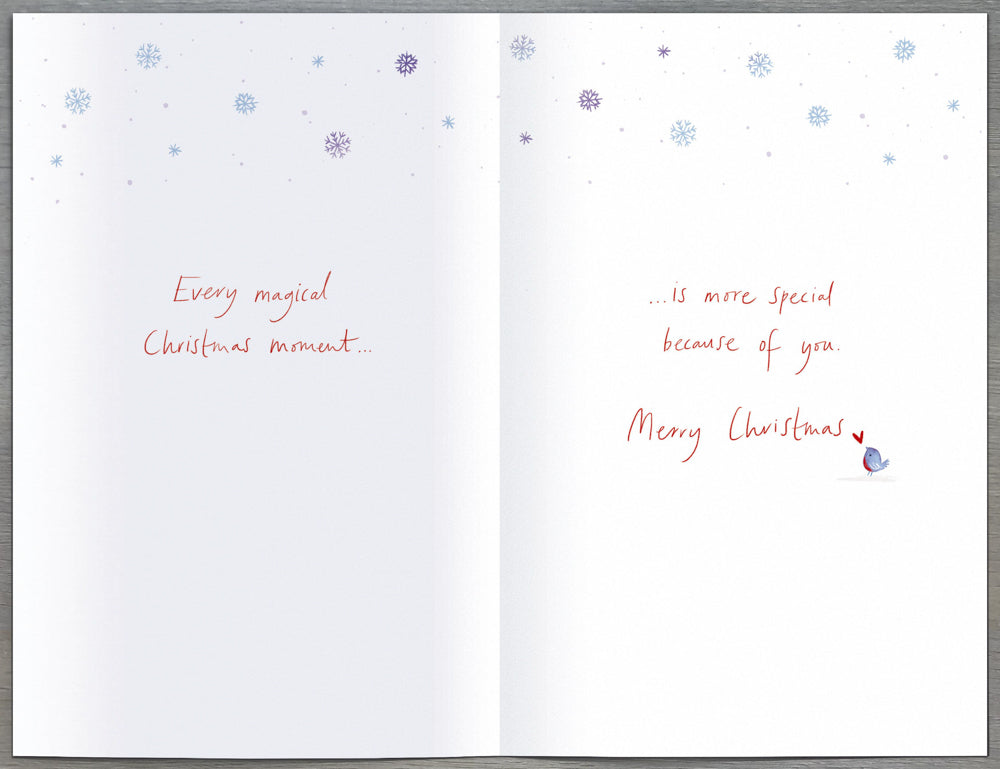 Every magical
Christmas moment...
...is more special
because of you.
Merry Christmas